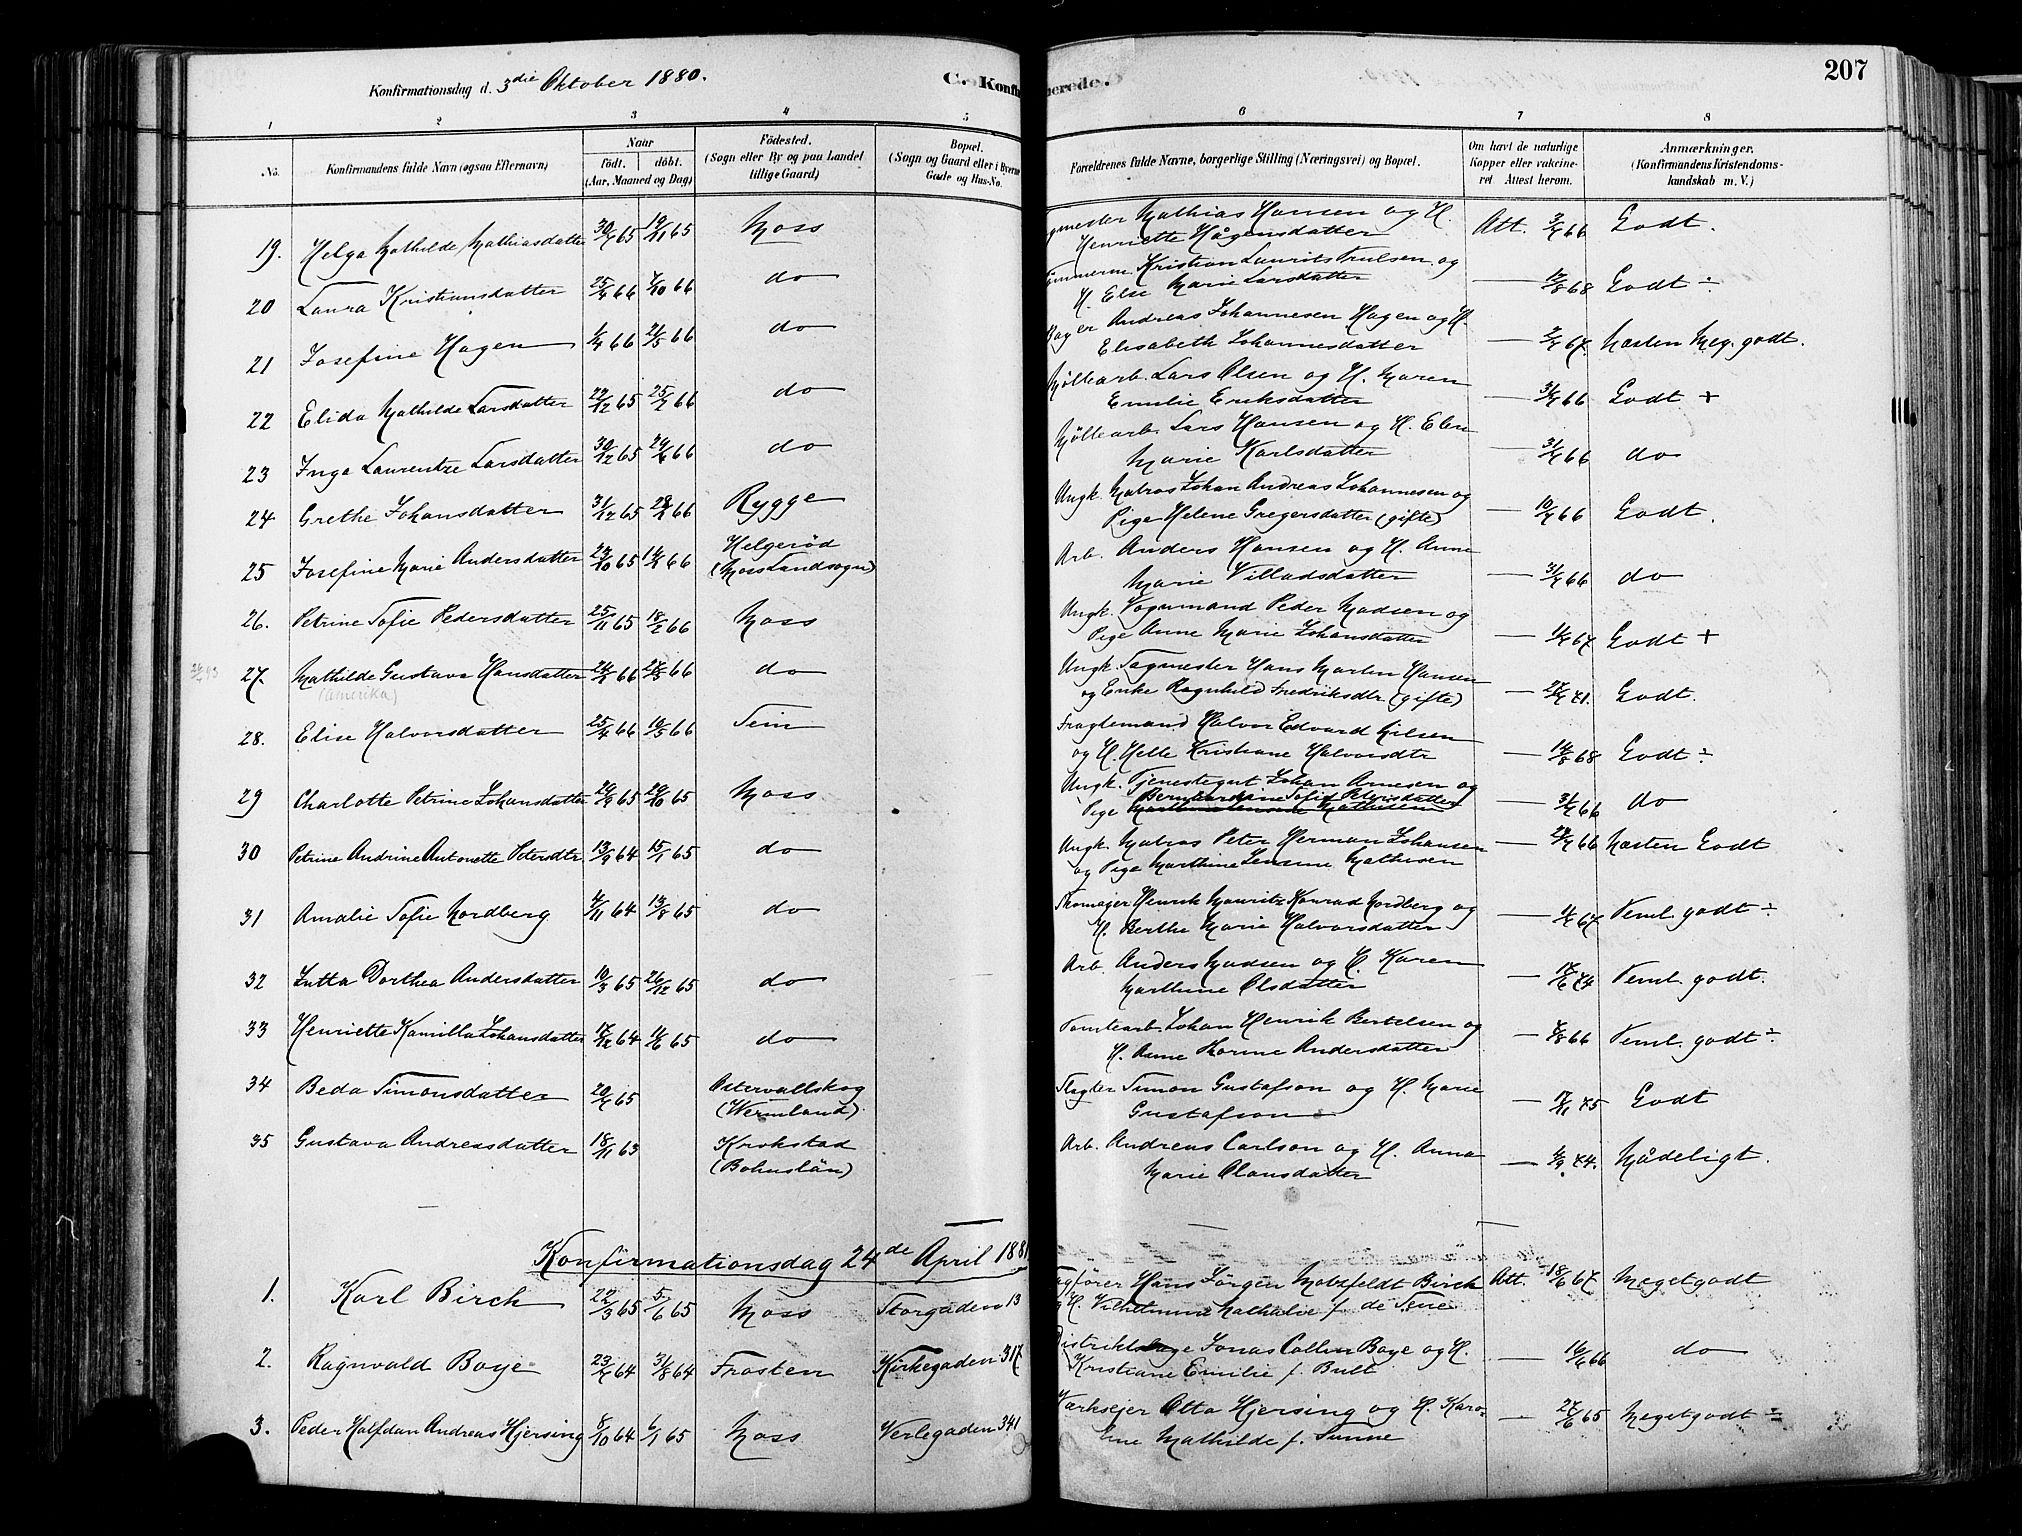 Konfirmationsdag d. 3die Oktober 1880.
C. Konfirmerede.
207
1 2 3 4 5 6 7 8
No. Konfirmandens fulde Navn (ogsaa Efternavn) Naar födt. döbt. (Aar, Maaned og Dag) Födested. (Sogn eller By og paa Landet tillige Gaard) Bopæl. (Sogn og Gaard eller i Byerne Gade og Hus-No. Forældrenes fulde Navne, borgerlige Stilling (Næringsvei) og Bopæl. Om havt de naturlige Kopper eller vaccineret Attest herom. Anmærkninger. (Konfirmandens Kristendomskundskab m. V.)
19. Helga Mathilde Mathiasdatter 30/7 65 19/11 65 Moss
Mathias Hansen og H. Henriette Hågensdatter Att. 3/5 66 Godt.
20 Laura Kristiansdatter 25/4 66 7/10 66 do
Kristian Laurits Trulsen og H. Else Marie Larsdatter — 12/8 68 Godt ÷
21 Josefine Hagen 1/4 66 21/5 66 do
Bager Andreas Johannesen Hagen og H. Elisabeth Johannesdatter — 67. Næsten Meg. godt.
22 Elida Mathilde Larsdatter 22/12 65 25/2 66 do
Möllearb. Lars Olsen og H. Maren Emilie Eriksdatter — 31/7 66 Godt +
23 Inga Laurentze Larsdatter 30/12 65 24/6 66 do
Möllearb. Lars Hansen og H. Elen Marie Karlsdatter — 31/7 66 do
24 Grethe Johansdatter 31/12 65 66 Rygge
Ungk. Matros Johan Andreas Johannesen og Pige Helene Gregersdatter (gifte) — 66 Godt.
25 Josefine Marie Andersdatter 65 66 Helgeröd (Moss Landsogn)
Arb. Anders Hansen og H. Anne Marie Villadsdatter — 31/7 66 do
26. Petrine Sofie Pedersdatter 25/11 65 18/2 66 Moss
Ungk. Vognmand Peder Madsen og Pige Anne Marie Johansdatter — 67 Godt +
27. Mathilde Gustava Hansdatter 66 66 do
(Amerika)
Ungk. Sagmester Hans Martin Hansen og Enke Ragnhild Fredriksdtr. (gifte) — 71. Godt.
28. Elise Halvorsdatter 25/4 66 19/5 66 Sein
Fragtemand Halvor Edvard Nilsen og H. Helle Kristiane Halvorsdtr — 14/8 68 Godt ÷
29 Charlotte Petrine Johansdatter 29/9 65 29/10 65 Moss
Ungk. Tjenestegut Johan Arnesen og Pige Bernhardine Sofie Petersdatter — 31/7 66 do
30 Petrine Andrine Antonette Petersdtr 13/9 64 15/1 65 do
Ungk. Matros Peter Herman Johansen og Pige Marthine Jensine Mathisen — 66 Næsten Godt
31 Amalie Sofie Nordberg 4/11 64 13/8 65 do
Skomager Henrik Mauritz Konrad Nordberg og H. Berthe Marie Halvorsdatter — 67 Teml. godt ÷
32 Jutta Dorthea Andersdatter 19/3 65 26/12 65 do
Arb. Anders Madsen og H. Karen Marthine Olsdatter — 17/6 74 Teml. godt.
33 Henriette Kamilla Johansdatter 17/12 64 11/6 65 do
Tomtearb. Johan Henrik Bertelsen og H. Anne Thorine Andersdatter — 66 Teml. godt ÷
34 Beda Simonsdatter 65 Östervallskog (Wermland).
Slagter Simon Gustafson og H. Marie Gustafson — 17/11 75 Godt
35 Gustava Andreasdatter 18/11 63 Krokstad (Bohuslän)
Arb. Andreas Carlson og H. Anna Marie Olausdatter — 74. Mådeligt.
Konfirmationsdag 24de April 1881
1. Karl Birch 22/3 65 5/6 65 Moss Storgaden 13
Sagförer Hans Jörgen Motzfeldt Birch og H. Vilhelmine Nathalie f. de Seue Att. 18/6 67 Megetgodt
2. Ragnvald Boye 64 31/8 64 Frosten Kirkegaden 317
Distriktslæge Jonas Collin Boye og H. Kristiane Emilie f. Bull — 16/6 66 do
3. Peder Halfdan Andreas Hjersing 8/10 64 6/1 65 Moss Verlegaden 341
Værksejer Otto Hjersing og H. Karoline Mathilde f. Sunne — 27/6 65 Megetgodt ÷